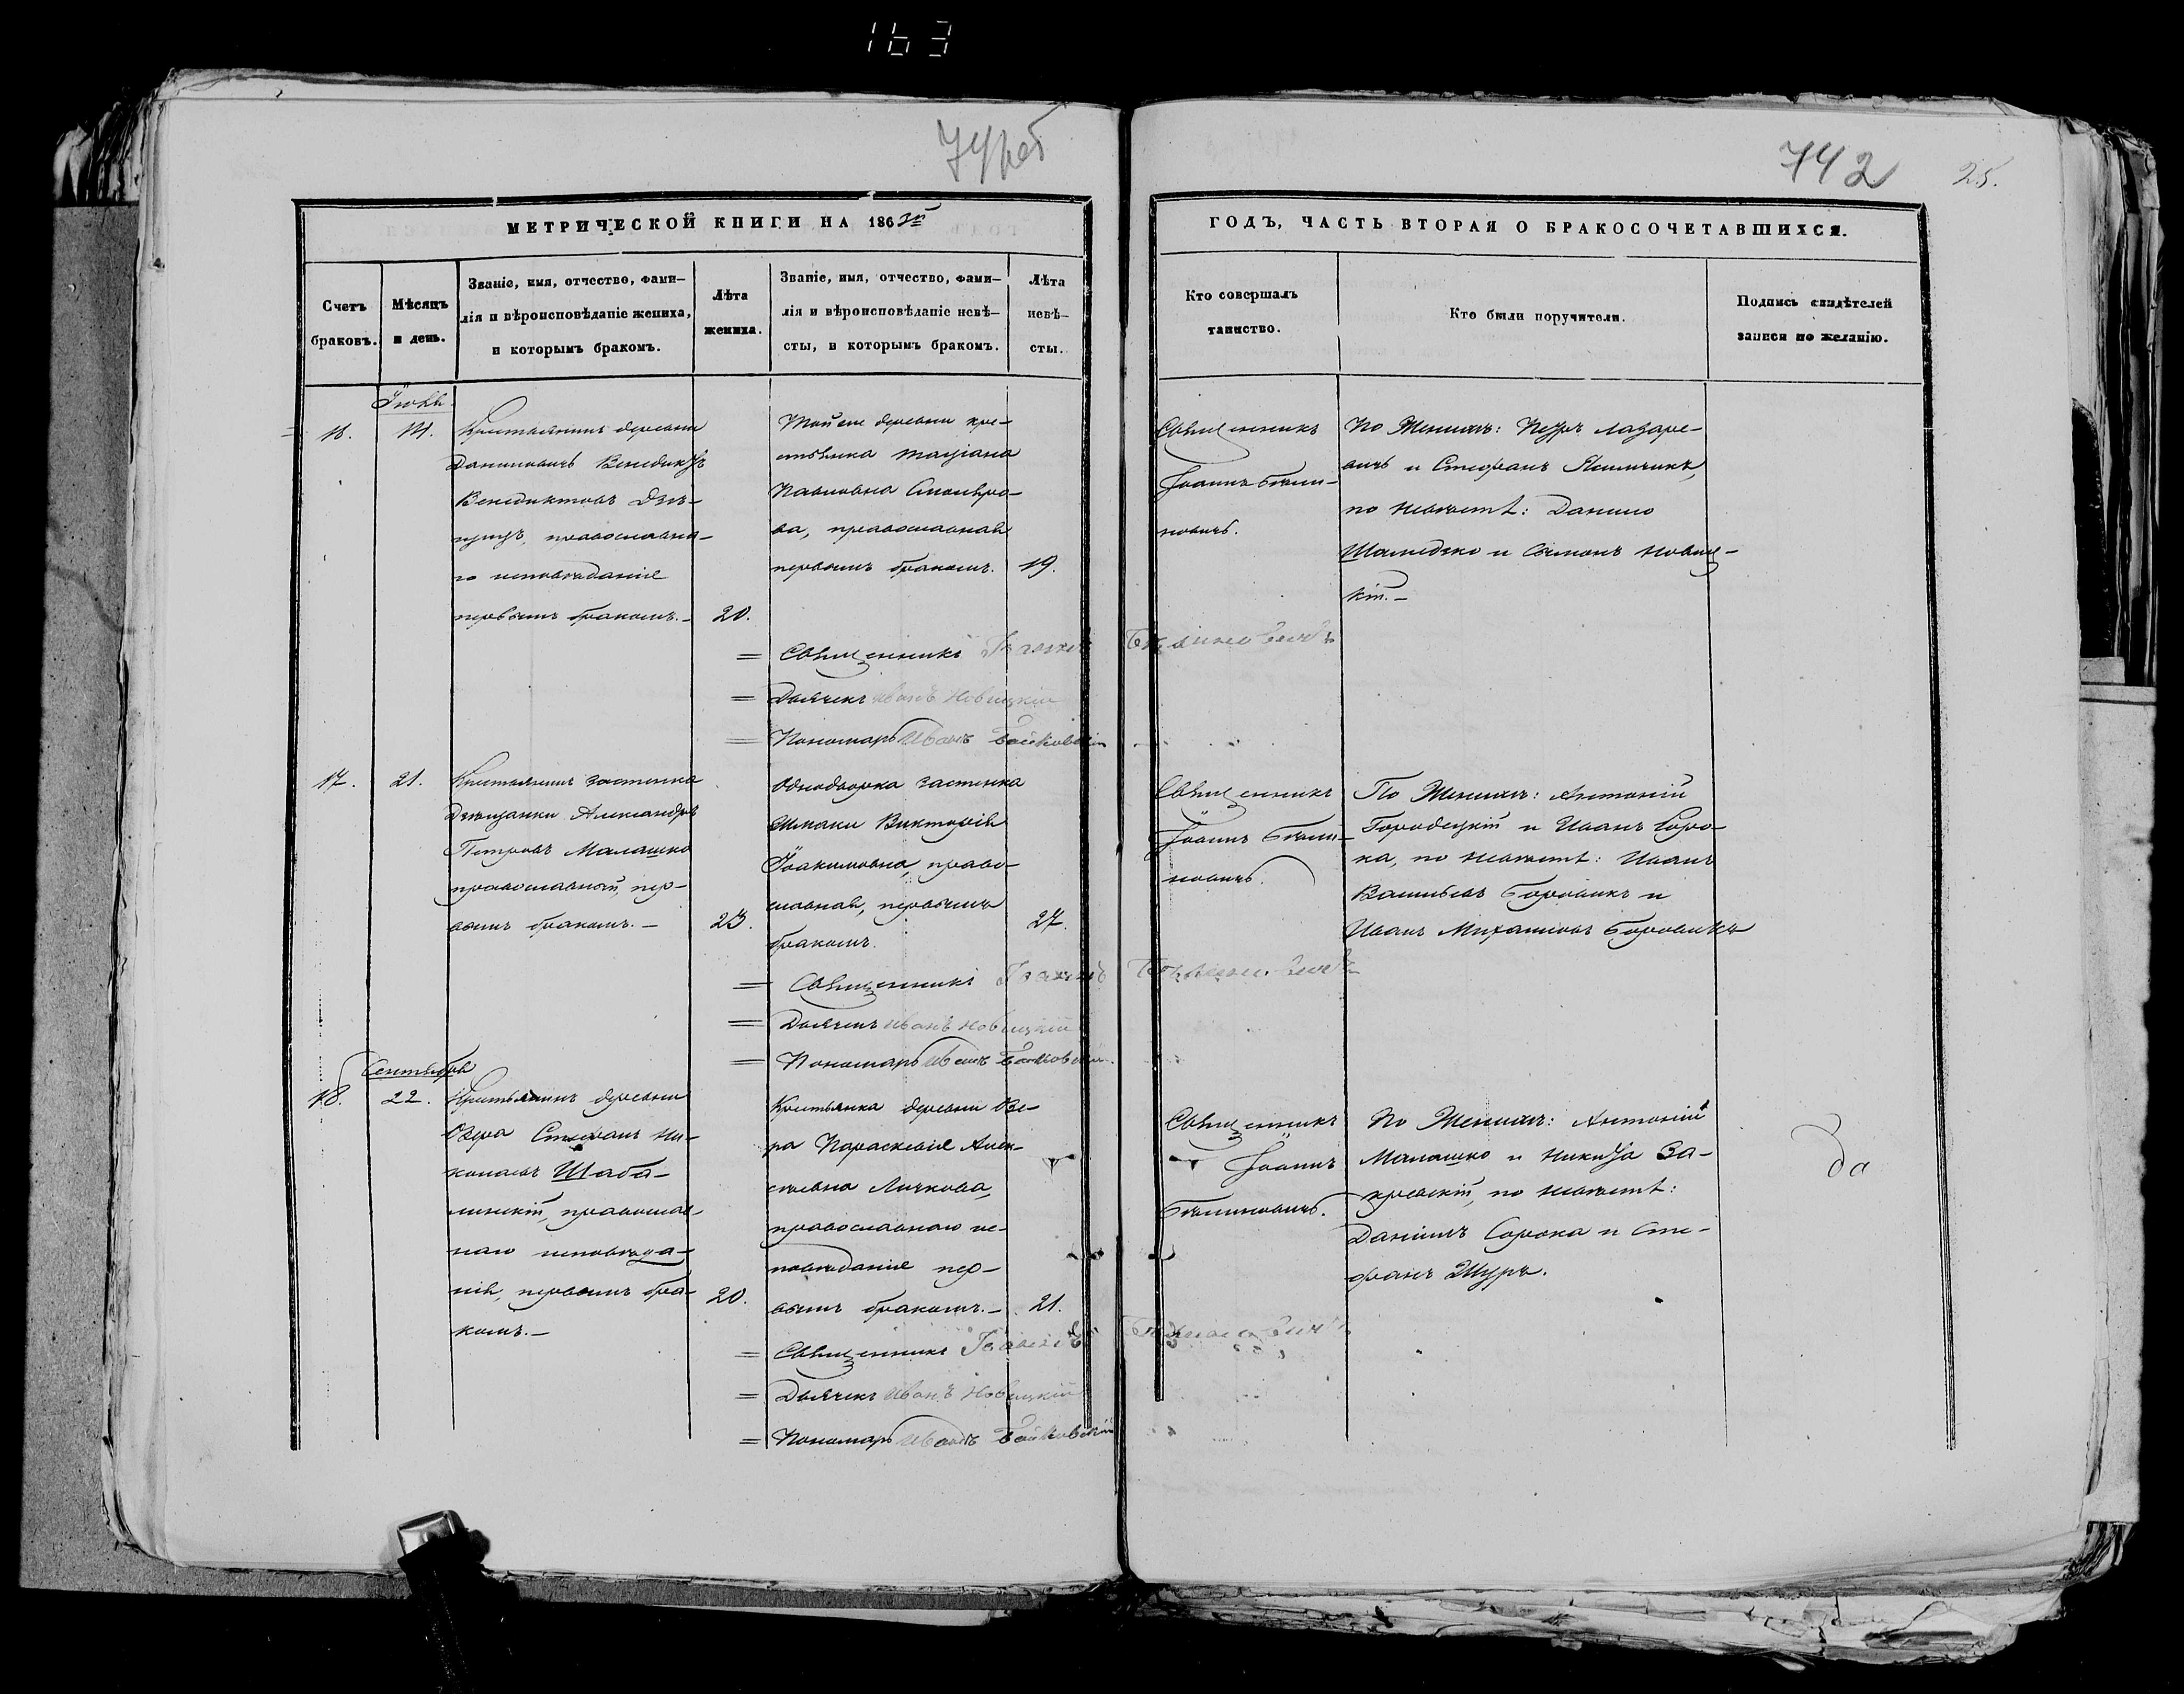 163
742
25.
МЕТРИЧЕСКОЙ КНИГИ НА 186
ГОДЪ, ЧАСТЬ ВТОРАЯ О БРАКОСОЧЕТАВШИХСЯ.
Счетъ
браковъ.
Мѣсяцъ
и день.
Званіе, имя, отчество, фами—
лія и вѣроисповѣданіе жениха,
и которымъ бракомъ.
Лѣта
жениха.
Званіе, имя, отчество, фами—
лія и вѣроисповѣданіе невѣ—
сты, и которымъ бракомъ.
Лѣта
невѣ—
сты.
Кто совершалъ
таинство.
Кто были поручители.
Подпись свидѣтелей
записи по желанію.
Крестьянинъ деревни
Даниловичъ Венедиктъ
Венедиктовъ
православна—
го исповѣданія
первымъ бракомъ.—
20.
Той же деревни кре—
стьянка Татіана
Павловна
ва, православная
первымъ бракомъ.
19.
Священникъ
Іоаннъ Бѣли—
новичъ.
По Женихѣ: Петръ Лазаре—
вичъ и Стефанъ
по невѣстѣ: Данило
и Симонъ Новиц—
кій.—
= Священникъ Іоаннъ Бѣлиновичъ
= Дьячекъ Иванъ Новицкій
= Пономарь Иванъ
17.
21.
Крестьянинъ застѣнка
Александръ
Петровъ Малашко
православный, пер—
вымъ бракомъ.—
23.
Однодворка застѣнка
Викторія
Іоакимовна, право—
славная, первымъ
бракомъ.
27.
Священникъ
Іоаннъ Бѣли—
новичъ.
По Женихѣ: Антоній
Городецкій и Иванъ Соро—
ка, по невѣстѣ: Иванъ
Васильевъ Боровикъ и
Иванъ Михайловъ Боровикъ
= Священникъ Іоаннъ Бѣлиновичъ
= Дьячекъ Иванъ Новицкій
= Пономарь Иванъ
Сентябрь
18.
22.
Крестьянинъ деревни
Озера Стефанъ Ни—
колаевъ Шаба—
линскій, православ—
наго исповѣда—
нія, первымъ бра—
комъ.—
20.
Крестьянка деревни Озе—
ра Параскевія Алек—
сѣевна Личкова,
православнаго ис—
повѣданія пер—
вымъ бракомъ.—
21.
Священникъ
Іоаннъ
Бѣлиновичъ.
По Женихѣ: Антоній
Малашко и Никита За—
кревскій, по невѣстѣ:
Даніилъ Сорока и Сте—
фанъ Щуръ.
да
= Священникъ Іоаннъ Бѣлиновичъ
= Дьячекъ Иванъ Новицкій
= Пономарь Иванъ